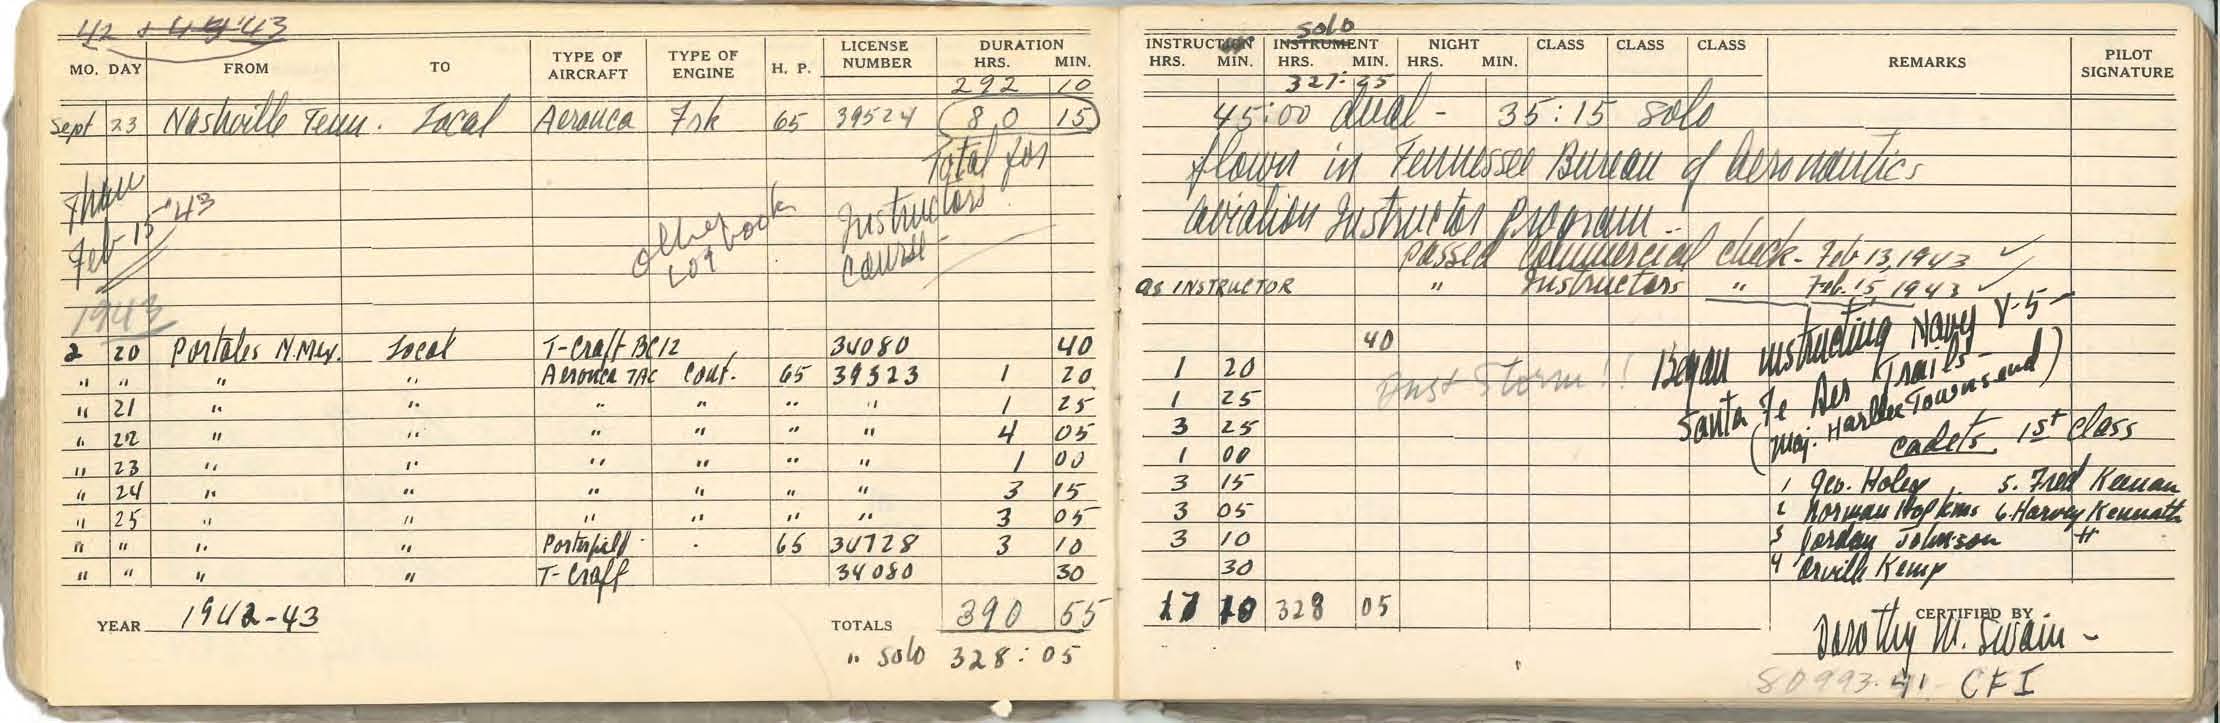 42 + 44 '43
MO. DAY FROM TO TYPE OF AIRCRAFT TYPE OF ENGINE H. P. LICENSE NUMBER DURATION HRS. MIN.
292 10
Sept 23 Nashville Tenn. Local Aeronca Frk 65 39524 80 15
Total for
Instructors
Course
Thru
Feb 15 '43
other book
Log
1943
2 20 Portales N.Mex. Local T-Craft BC12 34080 40
" " " " Aeronca 7AC Cont. 65 39323 1 20
" 21 " " " " " " 1 25
" 22 " " " " " " 4 05
" 23 " " " " " " 1 00
" 24 " " " " " " 3 15
" 25 " " " " " " 3 05
" " " " Porterfield 65 34728 3 10
" " " " T-Craft 34080 30
YEAR 1942-43 TOTALS 390 55
" solo 328:05
solo
INSTRUCTION HRS. MIN. INSTRUMENT HRS. MIN. NIGHT HRS. MIN. CLASS CLASS CLASS REMARKS PILOT SIGNATURE
327:25
45:00 dual - 35:15 solo
flown in Tennessee Bureau of Aeronautics
aviation Instructor Program..
passed Commercial check - Feb 13, 1943 ✓
as INSTRUCTOR " Instructors " Feb. 15, 1943 ✓
40
1 20
1 25
3 25
1 00
3 15
3 05
3 10
30
Dust Storm!!
Began instructing Navy V-5-
Santa Fe Aer Trails-
(Maj. Harllee Townsend)
cadets. 1st Class
1 Geo. Holey 5. Fred Keenan
2 Norman Hopkins 6. Harvey Kennath
3 Jordan Johnson
4 Orville Kemp
17 10 328 05
CERTIFIED BY
Dorothy M. Swain -
80993-41 CFI